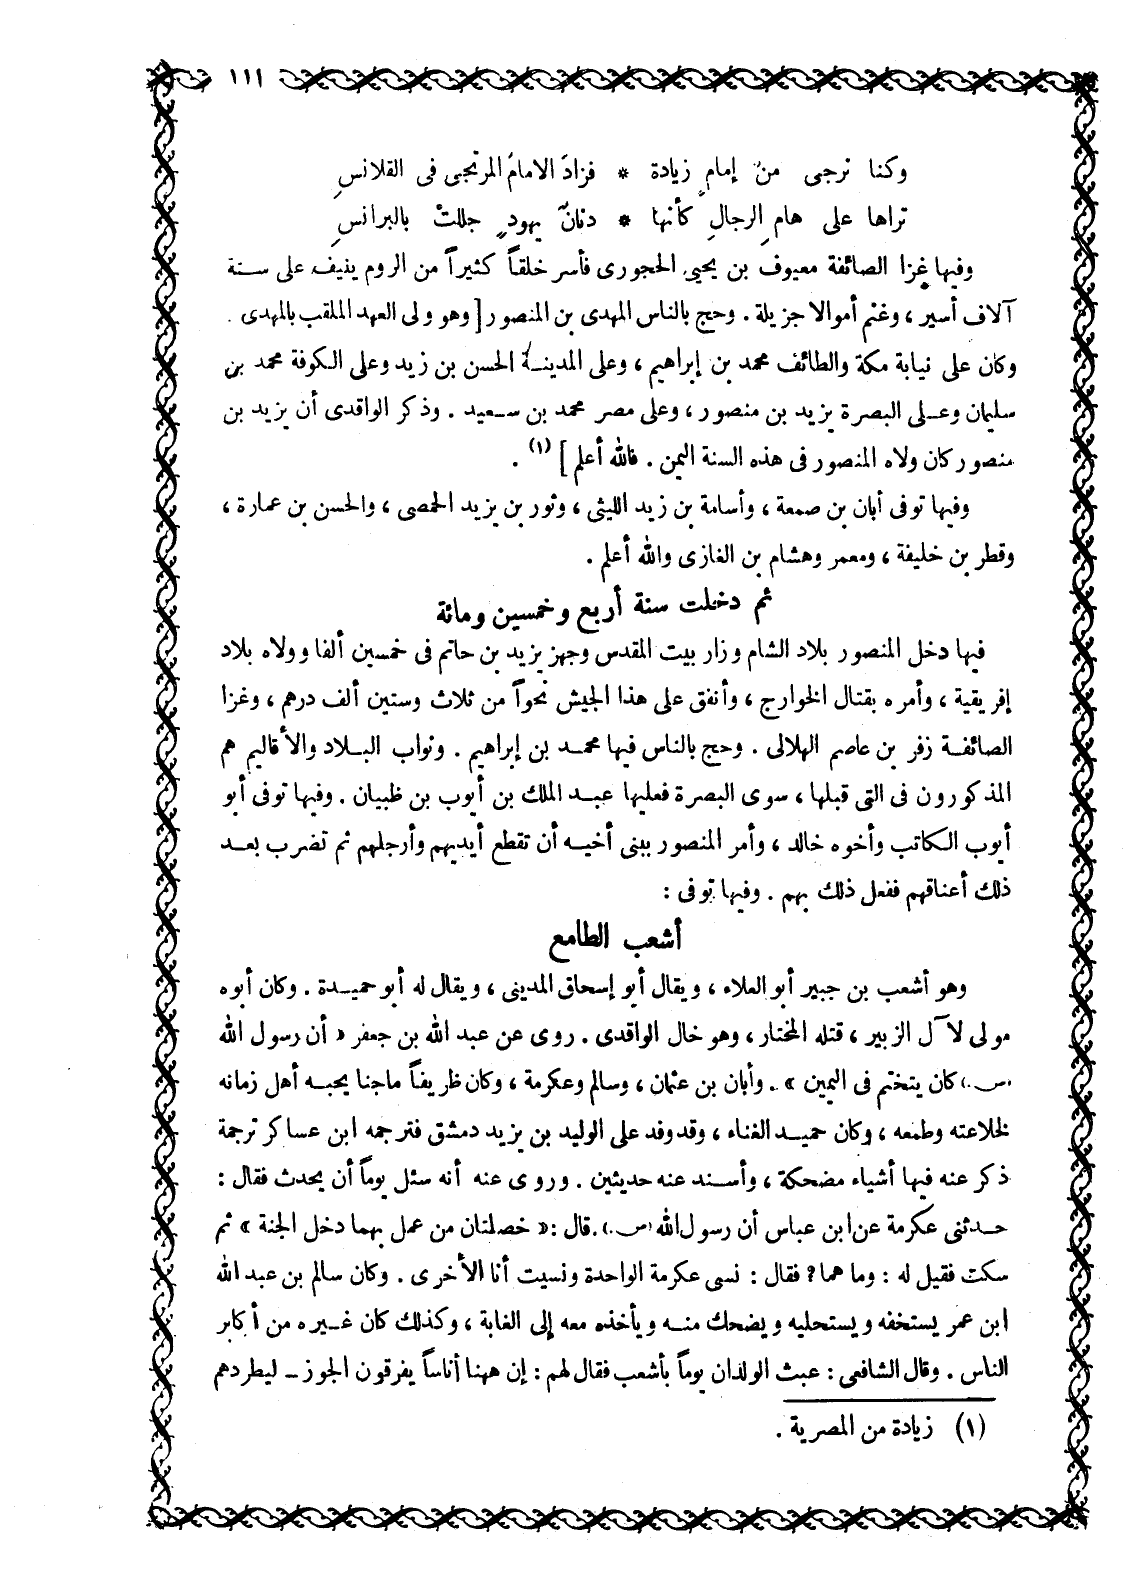 ١١١
وكنا نرجى منَ إمامٍ زيادة * فزادَ الامامُ المرتجى فى القلانسِ
تراها على هامِ الرجالِ كأنها * دنانَ يهودٍ جللتْ بالبرانسِ
وفيها غزا الصائفة معيوف بن يحيى الحجورى فأسر خلقاً كثيراً من الروم ينيف على ستة
آلاف أسير ، وغنم أموالا جزيلة . وحج بالناس المهدى بن المنصور [ وهو ولى العهد الملقب بالمهدى .
وكان على نيابة مكة والطائف محمد بن إبراهيم ، وعلى المدينة الحسن بن زيد وعلى الكوفة محمد بن
سليمان وعلى البصرة يزيد بن منصور ، وعلى مصر محمد بن سعيد . وذكر الواقدى أن يزيد بن
منصور كان ولاه المنصور فى هذه السنة اليمن . فالله أعلم ] (١) .
وفيها توفى أبان بن صمعة ، وأسامة بن زيد الليثى ، وثور بن يزيد الحمصى ، والحسن بن عمارة ،
وقطر بن خليفة ، ومعمر وهشام بن الغازى والله أعلم .
ثم دخلت سنة أربع وخمسين ومائة
فيها دخل المنصور بلاد الشام وزار بيت المقدس وجهز يزيد بن حاتم فى خمسين ألفا وولاه بلاد
إفريقية ، وأمره بقتال الخوارج ، وأنفق على هذا الجيش نحواً من ثلاث وستين ألف درهم ، وغزا
الصائفة زفر بن عاصم الهلالى . وحج بالناس فيها محمد بن إبراهيم . ونواب البلاد والأقاليم هم
المذكورون فى التى قبلها ، سوى البصرة فعليها عبد الملك بن أيوب بن ظبيان . وفيها توفى أبو
أيوب الكاتب وأخوه خالد ، وأمر المنصور ببنى أخيه أن تقطع أيديهم وأرجلهم ثم تضرب بعد
ذلك أعناقهم ففعل ذلك بهم . وفيها توفى :
أشعب الطامع
وهو أشعب بن جبير أبو العلاء ، ويقال أبو إسحاق المدينى ، ويقال له أبو حميدة . وكان أبوه
مولى لآل الزبير ، قتله المختار ، وهو خال الواقدى . روى عن عبد الله بن جعفر « أن رسول الله
(ص.) كان يتختم فى اليمين » . وأبان بن عثمان ، وسالم وعكرمة ، وكان ظريفاً ماجنا يحبه أهل زمانه
لخلاعته وطمعه ، وكان حميد الغناء ، وقد وفد على الوليد بن يزيد دمشق فترجمه ابن عساكر ترجمة
ذكر عنه فيها أشياء مضحكة ، وأسند عنه حديثين . وروى عنه أنه سئل يوماً أن يحدث فقال :
حدثنى عكرمة عن ابن عباس أن رسول الله (ص.) . قال : « خصلتان من عمل بهما دخل الجنة » ثم
سكت فقيل له : وما هما ? فقال : نسى عكرمة الواحدة ونسيت أنا الأخرى . وكان سالم بن عبد الله
ابن عمر يستخفه ويستحليه ويضحك منه ويأخذه معه إلى الغابة ، وكذلك كان غيره من أكابر
الناس . وقال الشافعى : عبث الولدان يوماً بأشعب فقال لهم : إن ههنا أناساً يفرقون الجوز ــ ليطردهم
(١) زيادة من المصرية .